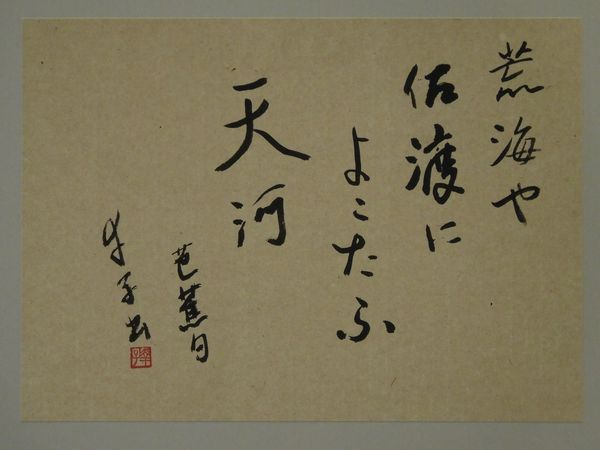 荒海や
佐渡に
よこたふ
天河
芭蕉句